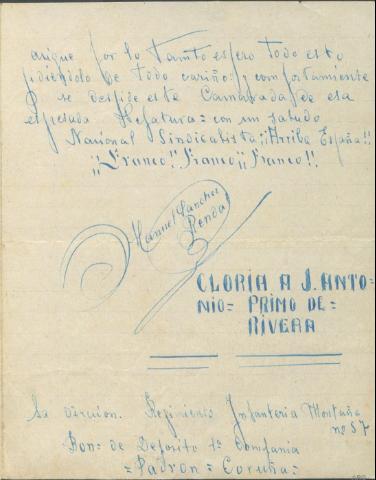 arigue por lo Tamto espero todo esto
pidiendolo de todo cariño: y comfortamiente
se despide este Camarada de esa
espresada Gefatura= con un saludo
Nacional Sindicalista ¡¡Arriba España!!
¡¡Franco!! Franco ¡¡Franco!!
Manuel Sanchez
Rendal
GLORIA A J. ANTO=
NIO= PRIMO DE=
RIVERA
Sa direcion. Regimiento Infanteria Montaña
nº 57
Bon= de Deposito 1ª Compania
=Padron= Coruña=